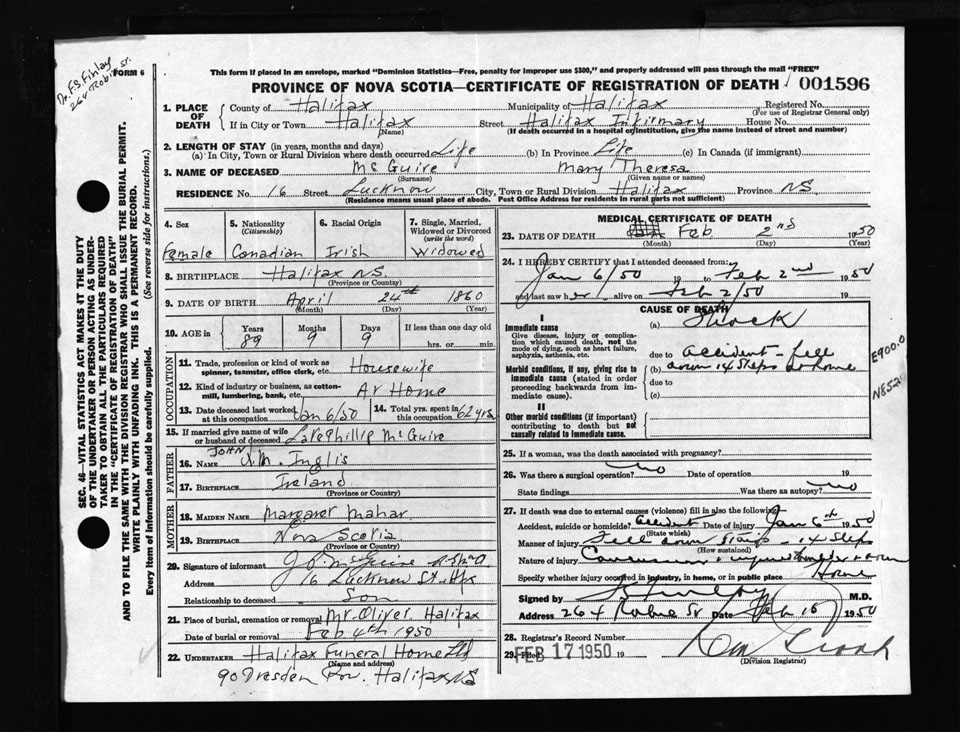 Dr. F.S. Finlay
264 Robie St.
FORM 6
This form if placed in an envelope, marked "Dominion Statistics—Free, penalty for improper use $300," and properly addressed will pass through the mail "FREE"
PROVINCE OF NOVA SCOTIA—CERTIFICATE OF REGISTRATION OF DEATH 001596
1. PLACE OF DEATH County of Halifax Municipality of Halifax Registered No.
(For use of Registrar General only)
If in City or Town Halifax Street Halifax Infirmary House No.
(Name) (If death occurred in a hospital or institution, give the name instead of street and number)
2. LENGTH OF STAY (in years, months and days)
(a) In City, Town or Rural Division where death occurred Life (b) In Province Life (c) In Canada (if immigrant)
3. NAME OF DECEASED McGuire Mary Theresa
(Surname) (Given name or names)
RESIDENCE No. 16 Street Lucknow City, Town or Rural Division Halifax Province NS
(Residence means usual place of abode. Post Office Address for residents in rural parts not sufficient)
4. Sex 5. Nationality (Citizenship) 6. Racial Origin 7. Single, Married, Widowed or Divorced (write the word)
Female Canadian Irish Widowed
8. BIRTHPLACE Halifax NS.
(Province or Country)
9. DATE OF BIRTH April 24th 1860
(Month) (Day) (Year)
10. AGE in Years Months Days If less than one day old
89 9 9 hrs. or min.
OCCUPATION
11. Trade, profession or kind of work as spinner, teamster, office clerk, etc. Housewife
12. Kind of industry or business, as cotton-mill, lumbering, bank, etc. At Home
13. Date deceased last worked at this occupation Jan 6/50 14. Total yrs. spent in this occupation 62 yrs
15. If married give name of wife or husband of deceased Late Phillip McGuire
FATHER
JOHN
16. NAME M. Inglis
17. BIRTHPLACE Ireland
(Province or Country)
MOTHER
18. MAIDEN NAME Margaret Mahar
19. BIRTHPLACE Nova Scotia
(Province or Country)
20. Signature of informant McGuire
Address 16 Lucknow St. Hfx
Relationship to deceased Son
21. Place of burial, cremation or removal Mt. Olivet, Halifax
Date of burial or removal Feb 4th 1950
22. UNDERTAKER Halifax Funeral Home Ltd
(Name and address)
90 Dresden Row, Halifax NS
MEDICAL CERTIFICATE OF DEATH
23. DATE OF DEATH Feb 2nd 1950
(Month) (Day) (Year)
24. I HEREBY CERTIFY that I attended deceased from:
Jan 6/50 19 to Feb 2nd 1950
and last saw her alive on Feb 2/50 19
CAUSE OF DEATH
I
Immediate cause (a) Shock
Give disease, injury or complication which caused death, not the mode of dying, such as heart failure, asphyxia, asthenia, etc.
due to accident - fell
Morbid conditions, if any, giving rise to immediate cause (stated in order proceeding backwards from immediate cause).
(b) down 14 steps at home
due to
(c)
II
Other morbid conditions (if important) contributing to death but not causally related to immediate cause.
E900.0
25. If a woman, was the death associated with pregnancy?
26. Was there a surgical operation? no Date of operation 19
State findings Was there an autopsy? no
27. If death was due to external causes (violence) fill in also the following:
Accident, suicide or homicide? accident Date of injury Jan 6th 1950
(State which)
Manner of injury Fell down stairs - 14 steps
(How sustained)
Nature of injury Concussion +
Specify whether injury occurred in industry, in home, or in public place Home
Signed by M.D.
Address 264 Robie St Date Feb 16 1950
28. Registrar's Record Number
29. Filed FEB 17 1950 19
(Division Registrar)
SEC. 46—VITAL STATISTICS ACT MAKES IT THE DUTY
OF THE UNDERTAKER OR PERSON ACTING AS UNDER-
TAKER TO OBTAIN ALL THE PARTICULARS REQUIRED
IN THE "CERTIFICATE OF REGISTRATION OF DEATH"
AND TO FILE THE SAME WITH THE DIVISION REGISTRAR WHO SHALL ISSUE THE BURIAL PERMIT.
WRITE PLAINLY WITH UNFADING INK. THIS IS A PERMANENT RECORD.
Every item of Information should be carefully supplied. (See reverse side for instructions.)